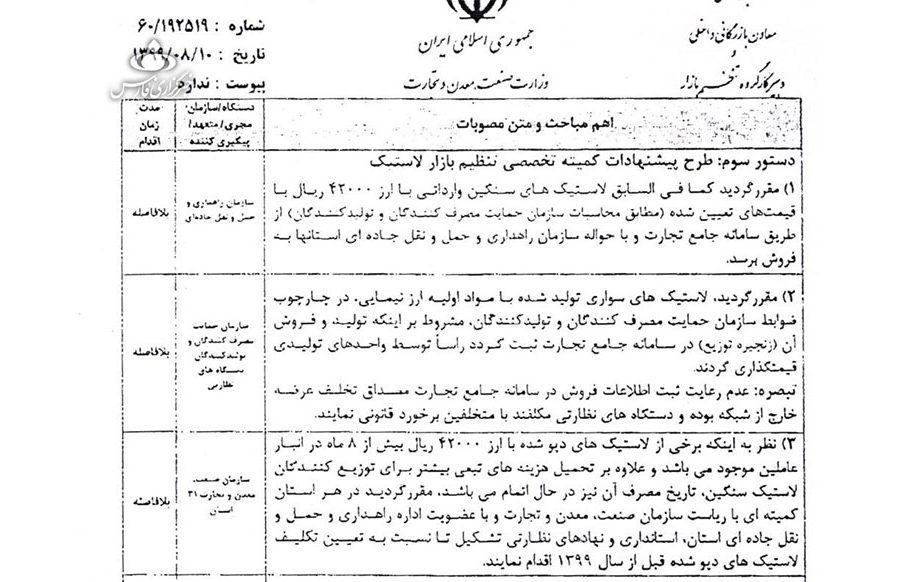 شماره : ۶۰/۱۹۲۵۱۹
تاریخ : ۱۳۹۹/۰۸/۱۰
پیوست : ندارد
خبرگزاری فارس
جمهوری اسلامی ایران
وزارت صنعت، معدن و تجارت
معاون بازرگانی داخلی
و
دبیر کارگروه تنظیم بازار
اهم مباحث و متن مصوبات
دستگاه/سازمان
مجری/متعهد/
پیگیری کننده
مدت
زمان
اقدام
دستور سوم: طرح پیشنهادات کمیته تخصصی تنظیم بازار لاستیک
۱) مقرر گردید کما فی السابق لاستیک های سنگین وارداتی با ارز ۴۲۰۰۰ ریال با
قیمت‌های تعیین شده (مطابق محاسبات سازمان حمایت مصرف کنندگان و تولیدکنندگان) از
طریق سامانه جامع تجارت و با حواله سازمان راهداری و حمل و نقل جاده ای استانها به
فروش برسد.
سازمان راهداری و
حمل و نقل جاده‌ای
بلافاصله
۲) مقرر گردید، لاستیک های سواری تولید شده با مواد اولیه ارز نیمایی، در چارچوب
ضوابط سازمان حمایت مصرف کنندگان و تولیدکنندگان، مشروط بر اینکه تولید و فروش
آن (زنجیره توزیع) در سامانه جامع تجارت ثبت گردد رأساً توسط واحدهای تولیدی
قیمتگذاری گردند.
تبصره: عدم رعایت ثبت اطلاعات فروش در سامانه جامع تجارت مصداق تخلف عرضه
خارج از شبکه بوده و دستگاه های نظارتی مکلفند با متخلفین برخورد قانونی نمایند.
سازمان حمایت
مصرف کنندگان و
تولیدکنندگان
دستگاه های
نظارتی
بلافاصله
۳) نظر به اینکه برخی از لاستیک های دپو شده با ارز ۴۲۰۰۰ ریال بیش از ۸ ماه در انبار
عاملین موجود می باشد و علاوه بر تحمیل هزینه های تبعی بیشتر برای توزیع کنندگان
لاستیک سنگین، تاریخ مصرف آن نیز در حال اتمام می باشد، مقرر گردید در هر استان
کمیته ای با ریاست سازمان صنعت، معدن و تجارت و با عضویت اداره راهداری و حمل و
نقل جاده ای استان، استانداری و نهادهای نظارتی تشکیل تا نسبت به تعیین تکلیف
لاستیک های دپو شده قبل از سال ۱۳۹۹ اقدام نمایند.
سازمان صنعت،
معدن و تجارت ۳۱
استان
بلافاصله